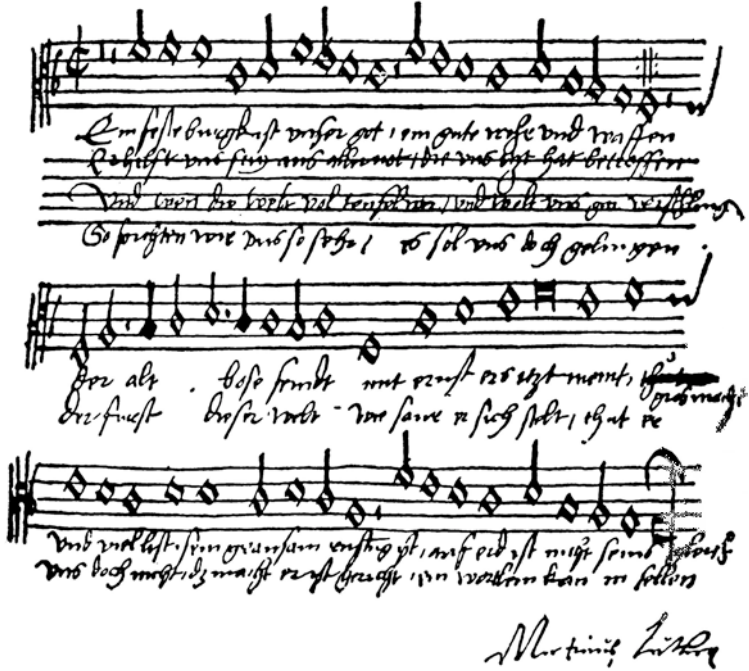 Ein feste burgk ist unser got, ein gute wehr und waffen
Er hilfft uns frey aus aller not, die uns itzt hat betroffen
Und wen die welt vol teuffel wer, und wolt uns gar verschlingen
So forchten wir uns so sehr, es sol uns doch gelingen
der alt bose feindt mit ernst ers itzt meint,
gros macht
der furst dieser welt wie saur er sich stelt, thut er
und viel list sein grausam rustung yst, auf erd ist nicht seins gleich
uns doch nicht, dz macht er ist gericht, ein wortlein kan in fellen
Martinus Luther